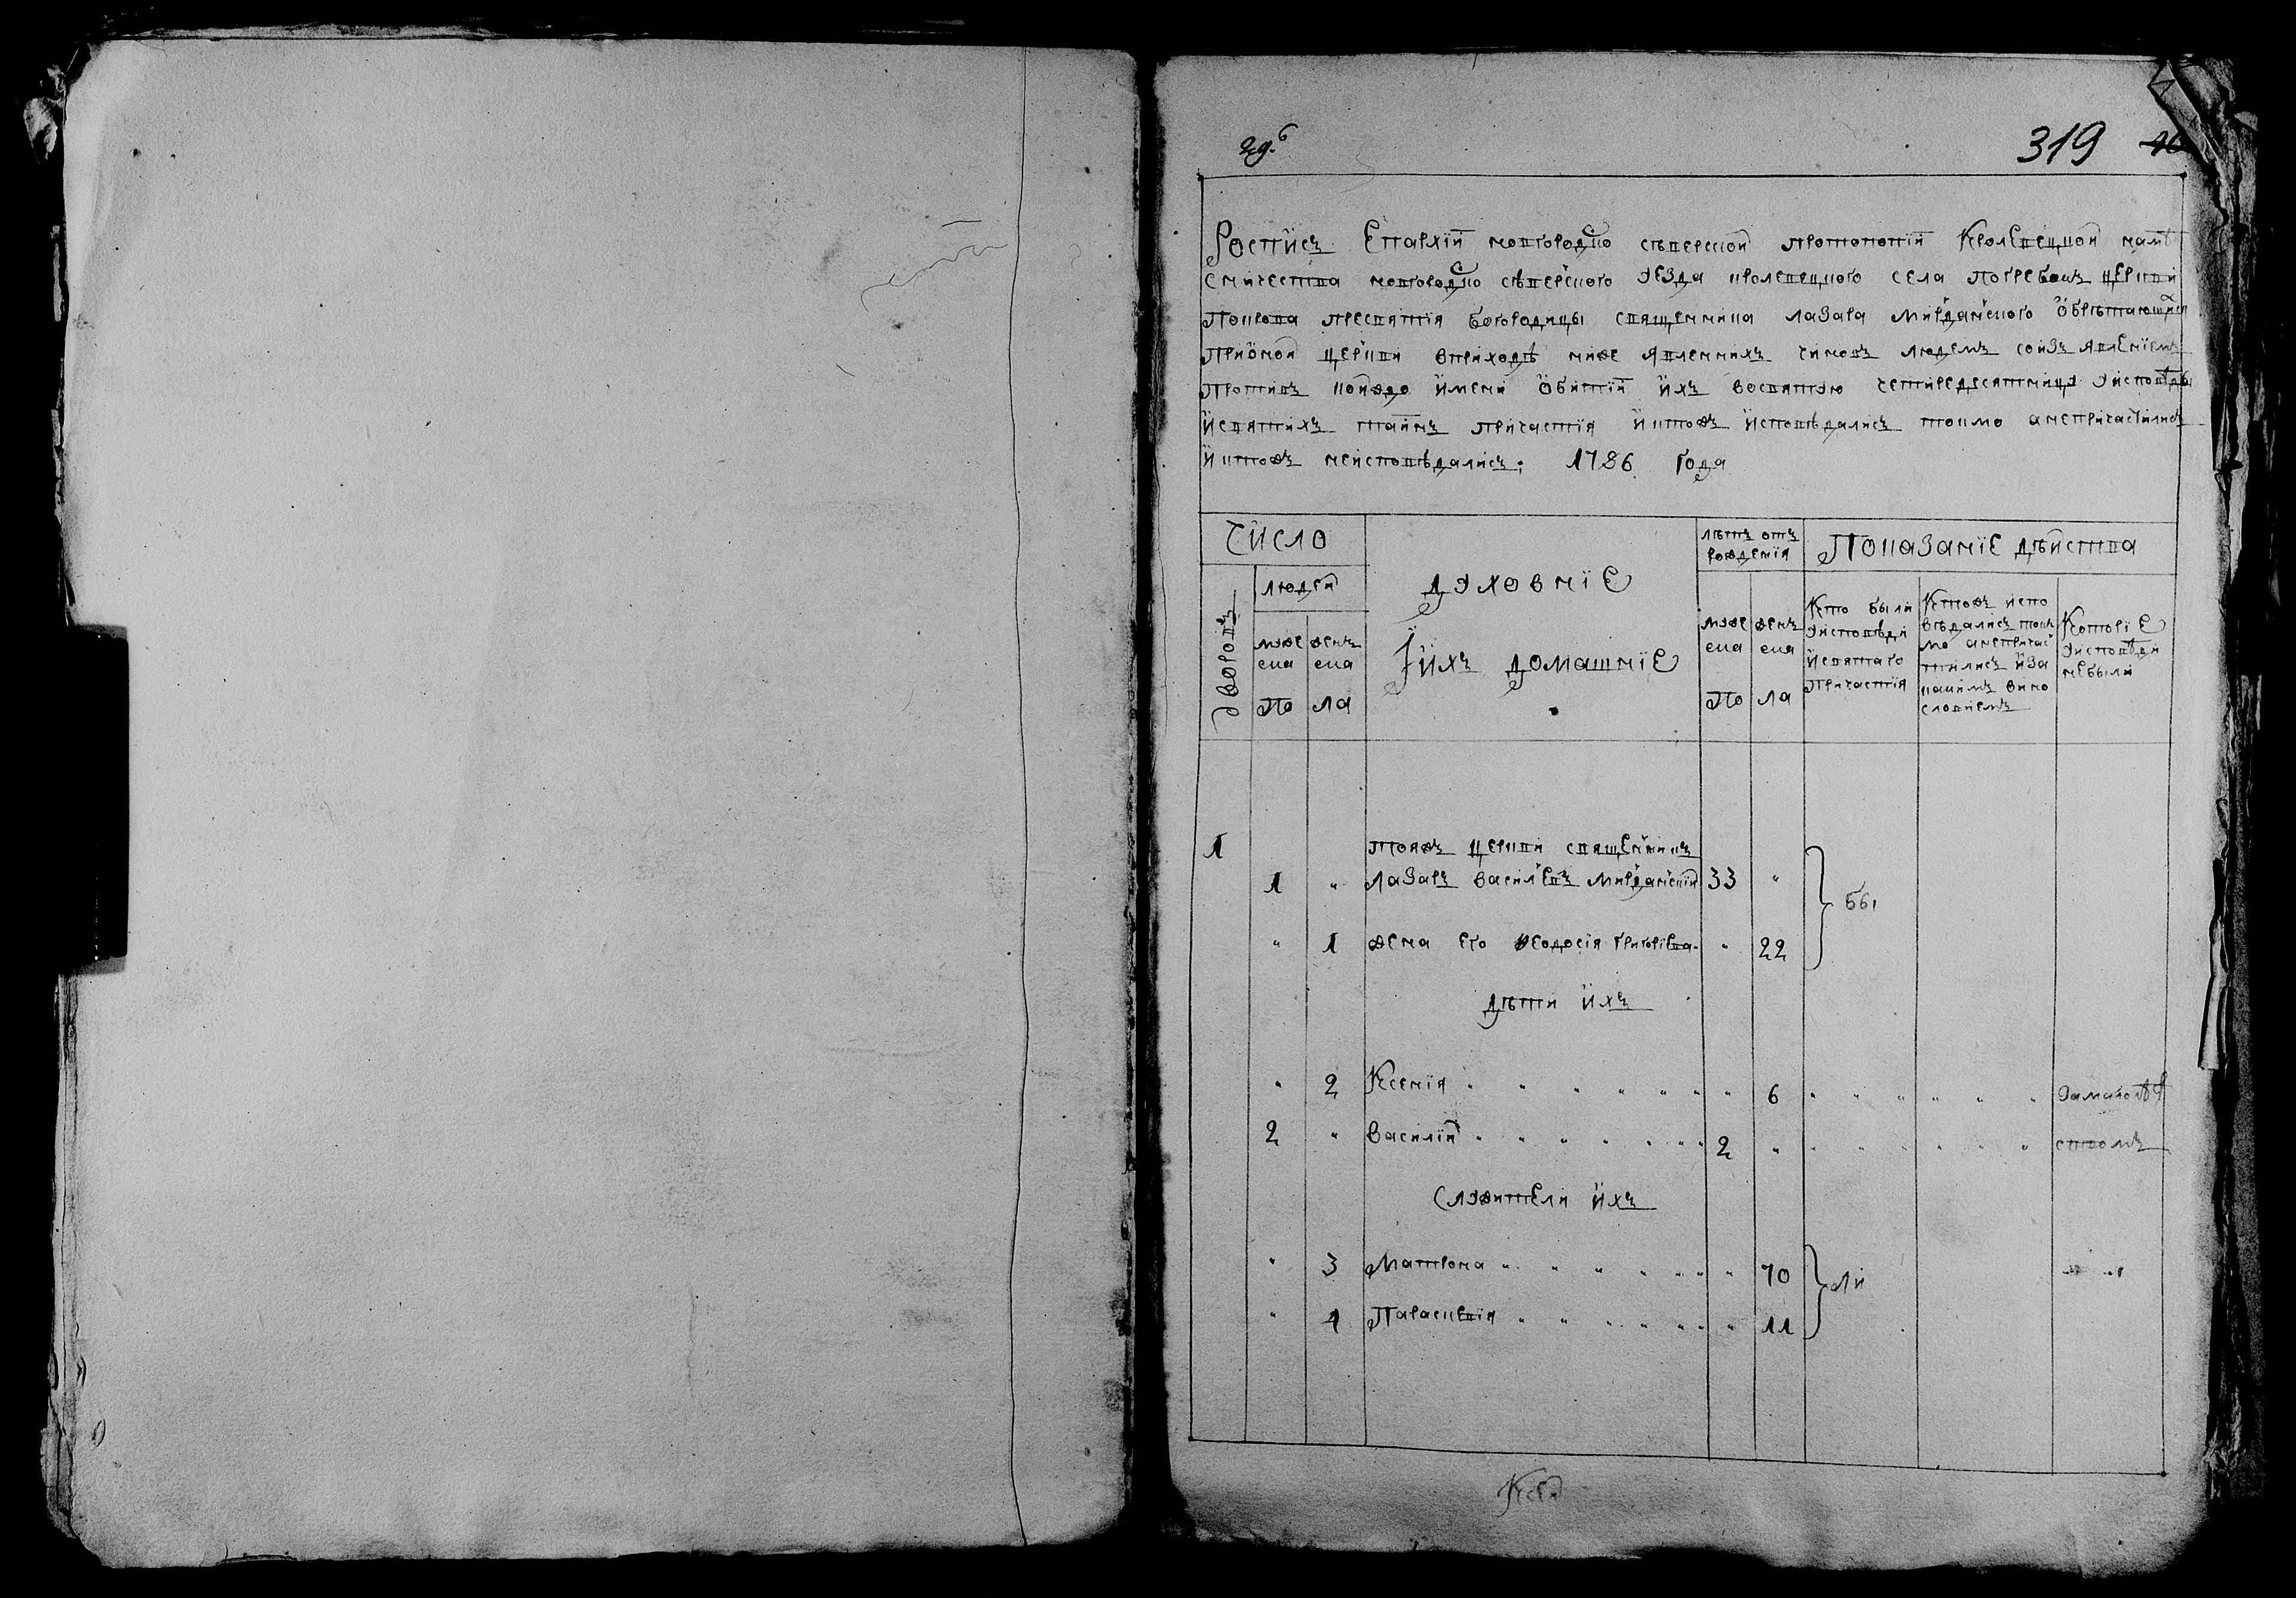 319
Роспись Епархїи новгородско сѣверской протопопїи Кролевецкой намѣ
сничества новгородско сѣверского уезда кролевецкого села Погребокъ церкви
Покрова пресвятія Богородицы священника Лазара Мирданского обрѣтающихся
Прионой церкви вприходѣ ниже явленнихъ чиновъ людемъ соизъ явленіемъ
Противъ койждо имени обитій ихъ восвятую четиредесятницу уисповѣды
исвятихъ таинъ причастія иктожъ исповѣдались токмо анепричастились
иктожъ неисповѣдались; 1786 Года
Число
духовніе
Іихъ домашніе
лѣтъ отъ
рожденія
Показаніе дѣйства
дворовъ
людей
муже
ска
По
женъ
ска
ла
муже
ска
По
женъ
ска
ла
Кто были
уисповѣди
исвятаго
Причастія
Ктожъ испо
вѣдались ток
мо анепричас
тились иза
какимъ вино
словіемъ
Которіе
уисповѣди
небыли
1 тояжъ церкви священникъ
1 " Лазарь Васильевъ Мирданскій 33 "
бы
" 1 жена его Феодосія Григоріева " 22
дѣти ихъ
" 2 Ксенія " 6 Замалолѣт
2 " Василій 2 " ствомъ
Служители ихъ
" 3 Матрона " 70
ли
" 4 Параскевія " 11